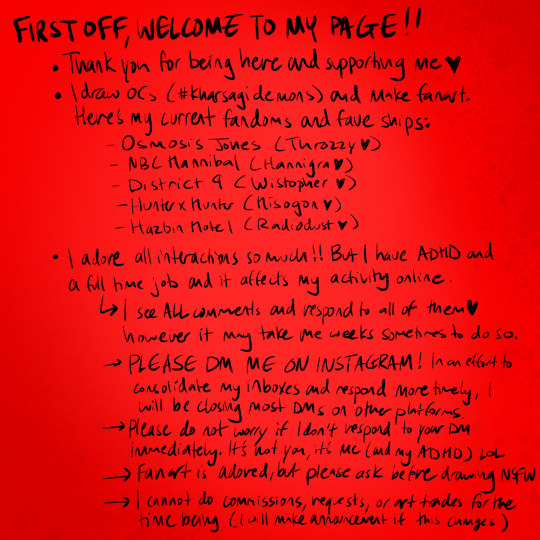 FIRST OFF, WELCOME TO MY PAGE!!
• Thank you for being here and supporting me ♥
• I draw OCs (#kharsagidemons) and make fanart.
Here's my current fandoms and fave ships:
- Osmosis Jones (Throzzy ♥)
- NBC Hannibal (Hannigra ♥)
- District 9 (Wistopher ♥)
- Hunter x Hunter (Hisogon ♥)
- Hazbin Hotel (Radiodust ♥)
• I adore all interactions so much!! But I have ADHD and
a full time job and it affects my activity online.
↳ I see ALL comments and respond to all of them ♥
however it may take me weeks sometimes to do so.
→ PLEASE DM ME ON INSTAGRAM! In an effort to
consolidate my inboxes and respond more timely, I
will be closing most DMs on other platforms.
→ Please do not worry if I don't respond to your DM
immediately. It's not you, it's me (and my ADHD) LOL
→ Fanart is adored, but please ask before drawing NSFW
→ I cannot do commissions, requests, or art trades for the
time being (I will make announcement if this changes)